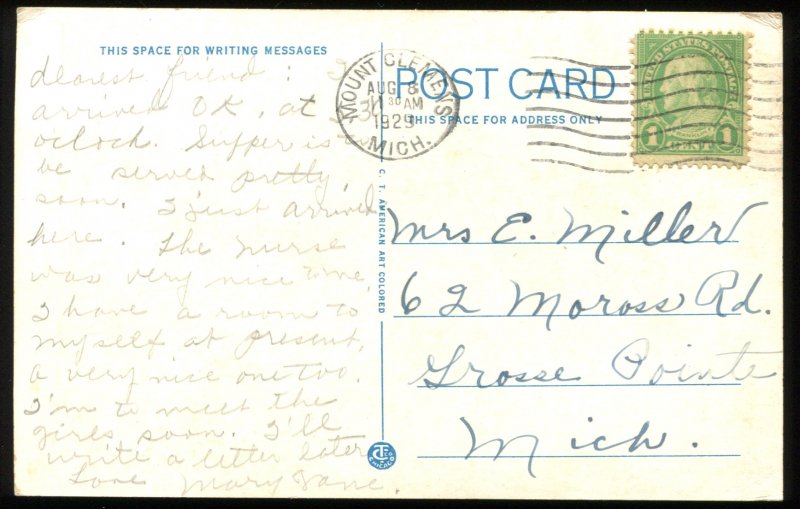 THIS SPACE FOR WRITING MESSAGES
dearest friend: I
arrived OK, at 3
o'clock. Supper is to
be served pretty
soon. I just arrived
here. The nurse
was very nice to me,
I have a room to
myself at present,
a very nice one too.
I'm to meet the
girls soon. I'll
write a letter later
Love Mary Jane.
C. T. AMERICAN ART COLORED
MOUNT CLEMENS
AUG 8
11 30 AM
1929
MICH.
POST CARD
THIS SPACE FOR ADDRESS ONLY
UNITED STATES POSTAGE
1 CENT 1
Mrs E. Miller
62 Moross Rd.
Grosse Pointe
Mich.
CHICAGO